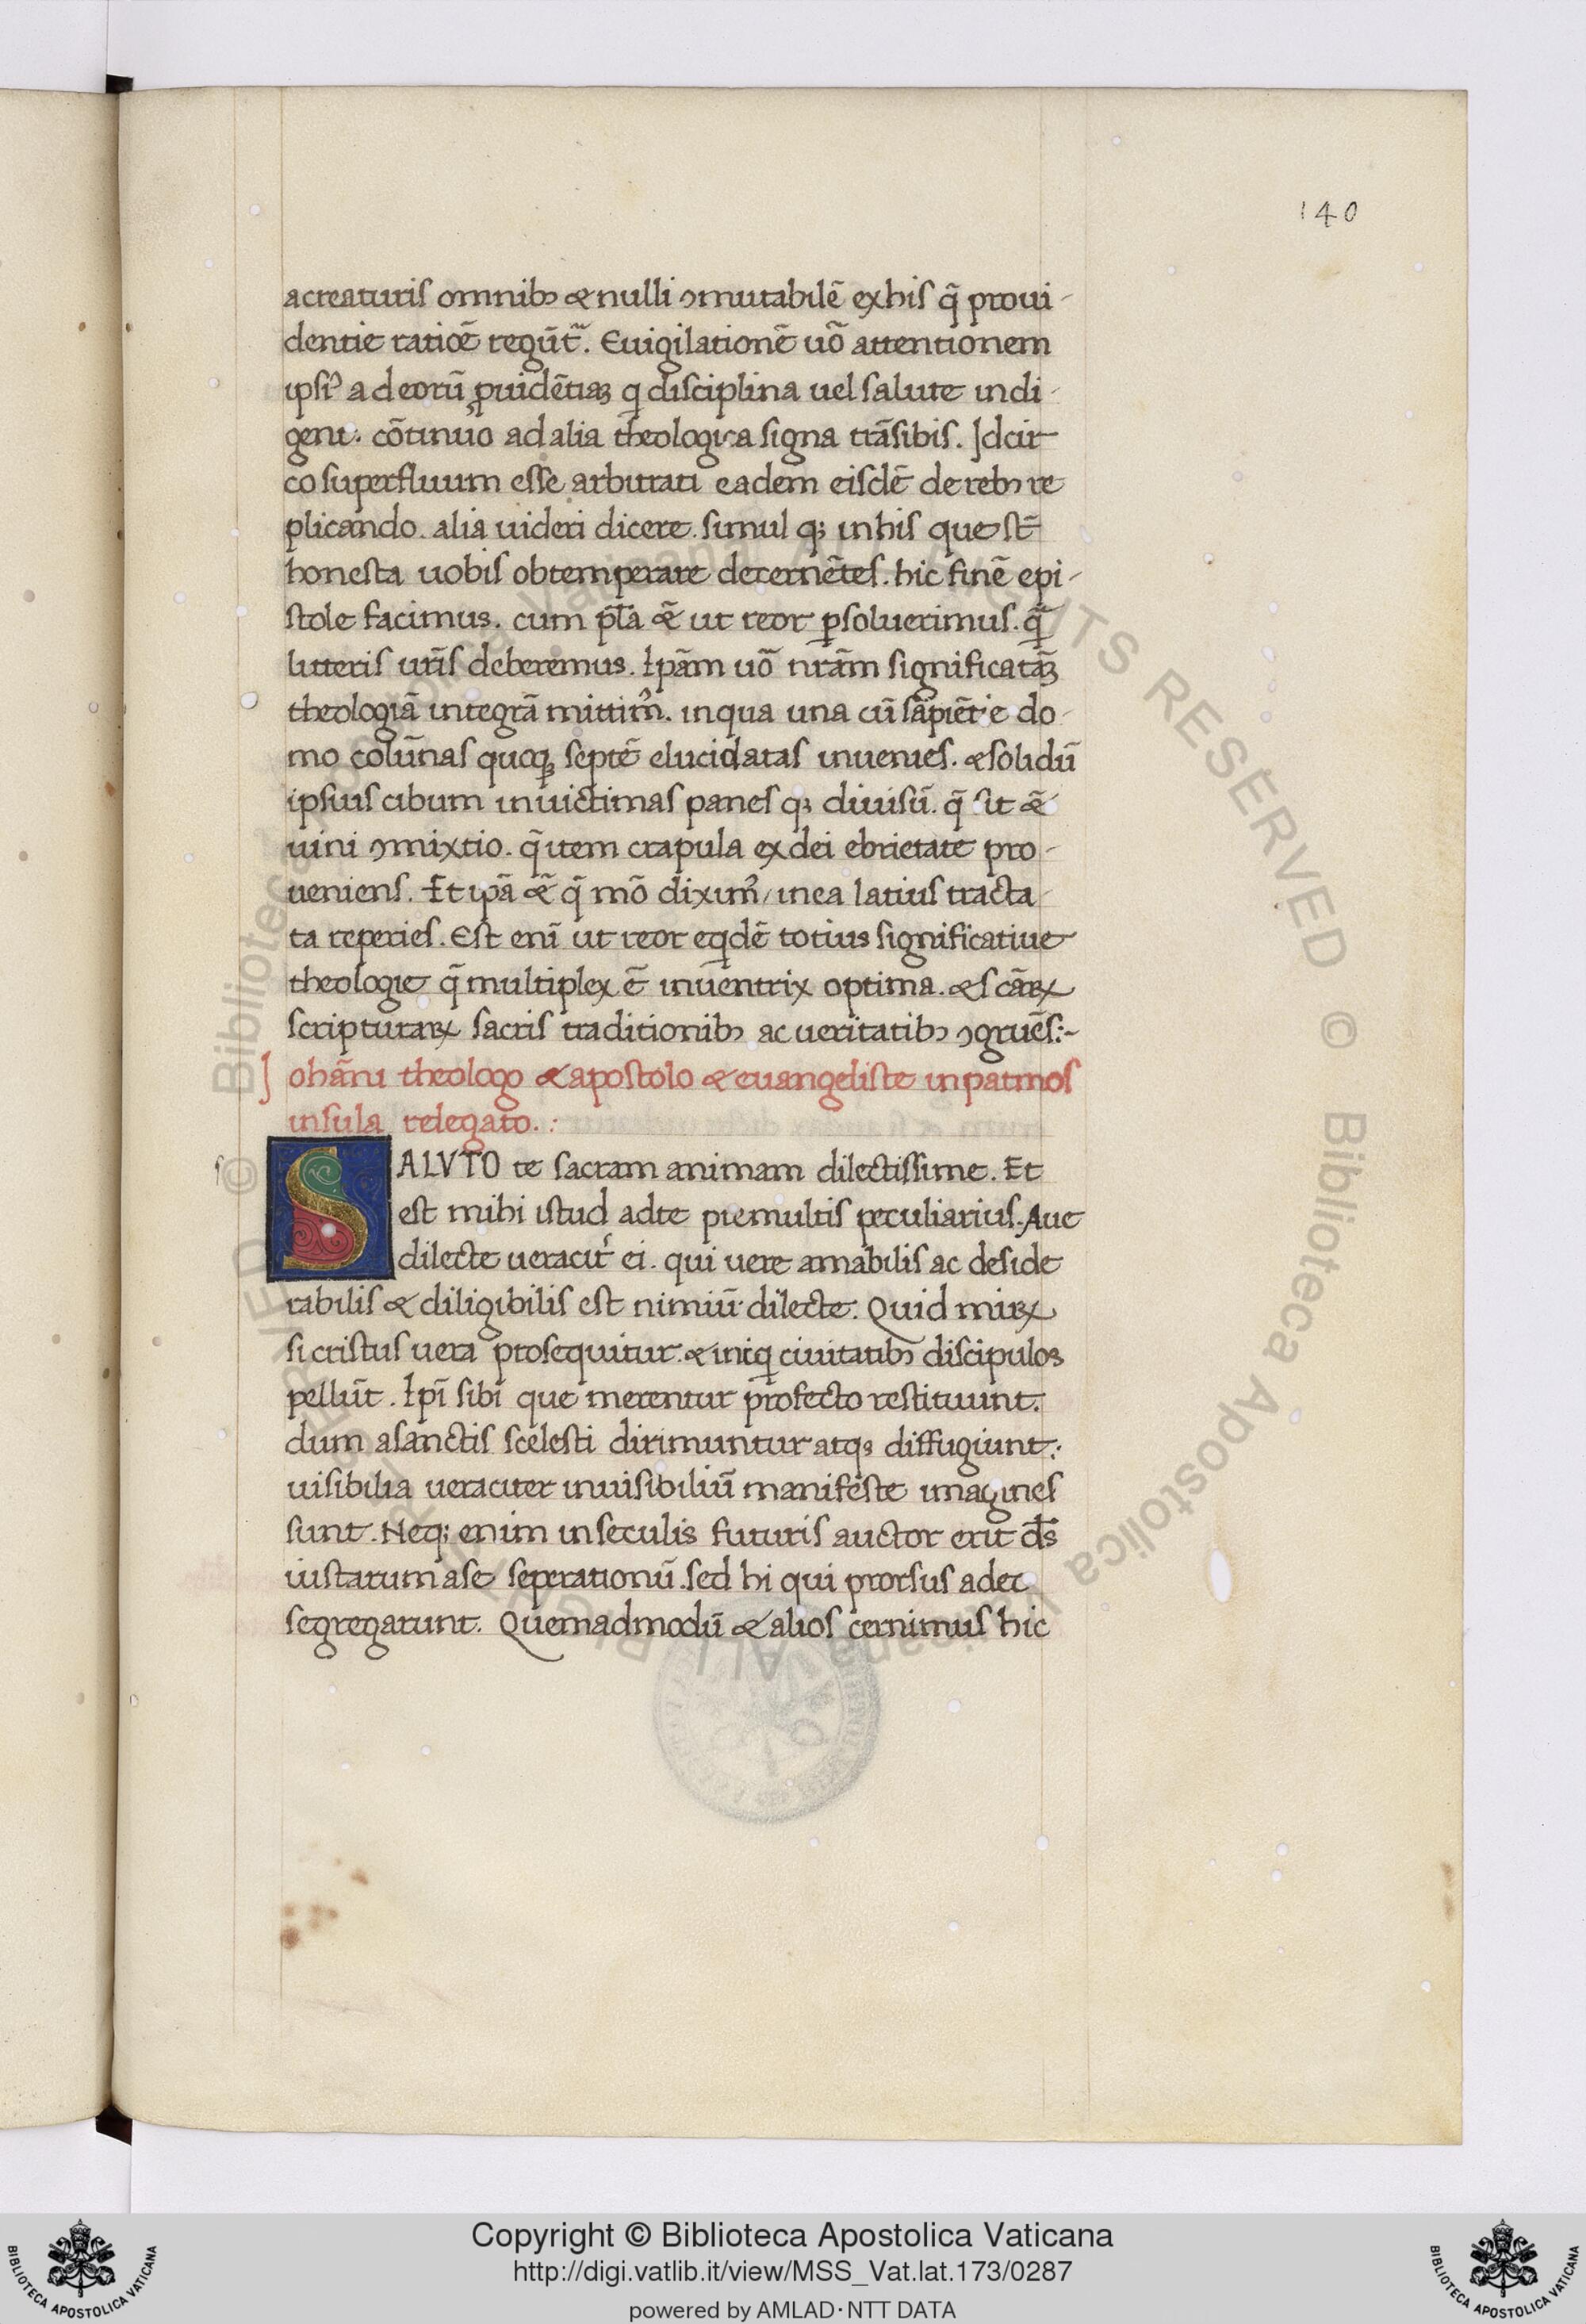 140
a creaturis omnibꝰ & nulli ꝯmutabilē ex his q̄ proui-
dentie ratiōe regūt᷑. Euigilationē uō attentionem
ipsiꝰ ad eorū ꝓuidētiaꝫ q disciplina uel salute indi-
gent. cōtinuo ad alia theologica signa trāsibis. Idcir
co superfluum esse arbitrati eadem eisdē de rebꝰ re
plicando. alia uideri dicere. simul qꝫ in his que st̄
honesta uobis obtemperare decernētes. hic finē epi-
stole facimus. cum pl̄a & ut reor ꝑsoluerimus. q̄
litteris ur̄is deberemus. Ipām uō nr̄am significatāꝫ
theologiā integrā mittimꝰ. in qua una cū sapiētie do-
mo colūnas quoqꝫ septē elucidatas inuenies. & solidū
ipsius cibum in uictimas panes qꝫ diuisū. q̄ sit &
uini ꝯmixtio. q̄ item crapula ex dei ebrietate pro-
ueniens. Et ipā & q̄ mō diximꝰ / in ea latius tracta-
ta reperies. Est enī ut reor eqdē totius significatiue
theologie q̄ multiplex ē inuentrix optima. & scāꝝ
scripturaꝝ sacris traditionibꝰ ac ueritatibꝰ ꝯgruēs:-
Iohāni theologo & apostolo & euangeliste in patmos
insula relegato. :
s
SALVTO te sacram animam dilectissime. Et
est mihi istud ad te pre multis peculiarius. Aue
dilecte ueracit᷑ ei. qui uere amabilis ac deside
rabilis & diligibilis est nimiū dilecte. Quid miꝝ
si cristus uera prosequitur. & iniq ciuitatibꝰ discipulos
pellūt. Ipī sibi que merentur profecto restituunt.
dum a sanctis scelesti dirimuntur atqꝫ diffugiunt:
uisibilia ueraciter inuisibiliū manifeste imagines
sunt. Neqꝫ enim in seculis futuris auctor erit d̄s
iustarum a se seperationū. sed hi qui prorsus a dec
segregarunt. Quemadmodū & alios cernimus hic
Copyright © Biblioteca Apostolica Vaticana
http://digi.vatlib.it/view/MSS_Vat.lat.173/0287
powered by AMLAD · NTT DATA
BIBLIOTECA APOSTOLICA VATICANA
BIBLIOTECA APOSTOLICA VATICANA
© Biblioteca Apostolica Vaticana ALL RIGHTS RESERVED © Biblioteca Apostolica Vaticana ALL RIGHTS RESERVED